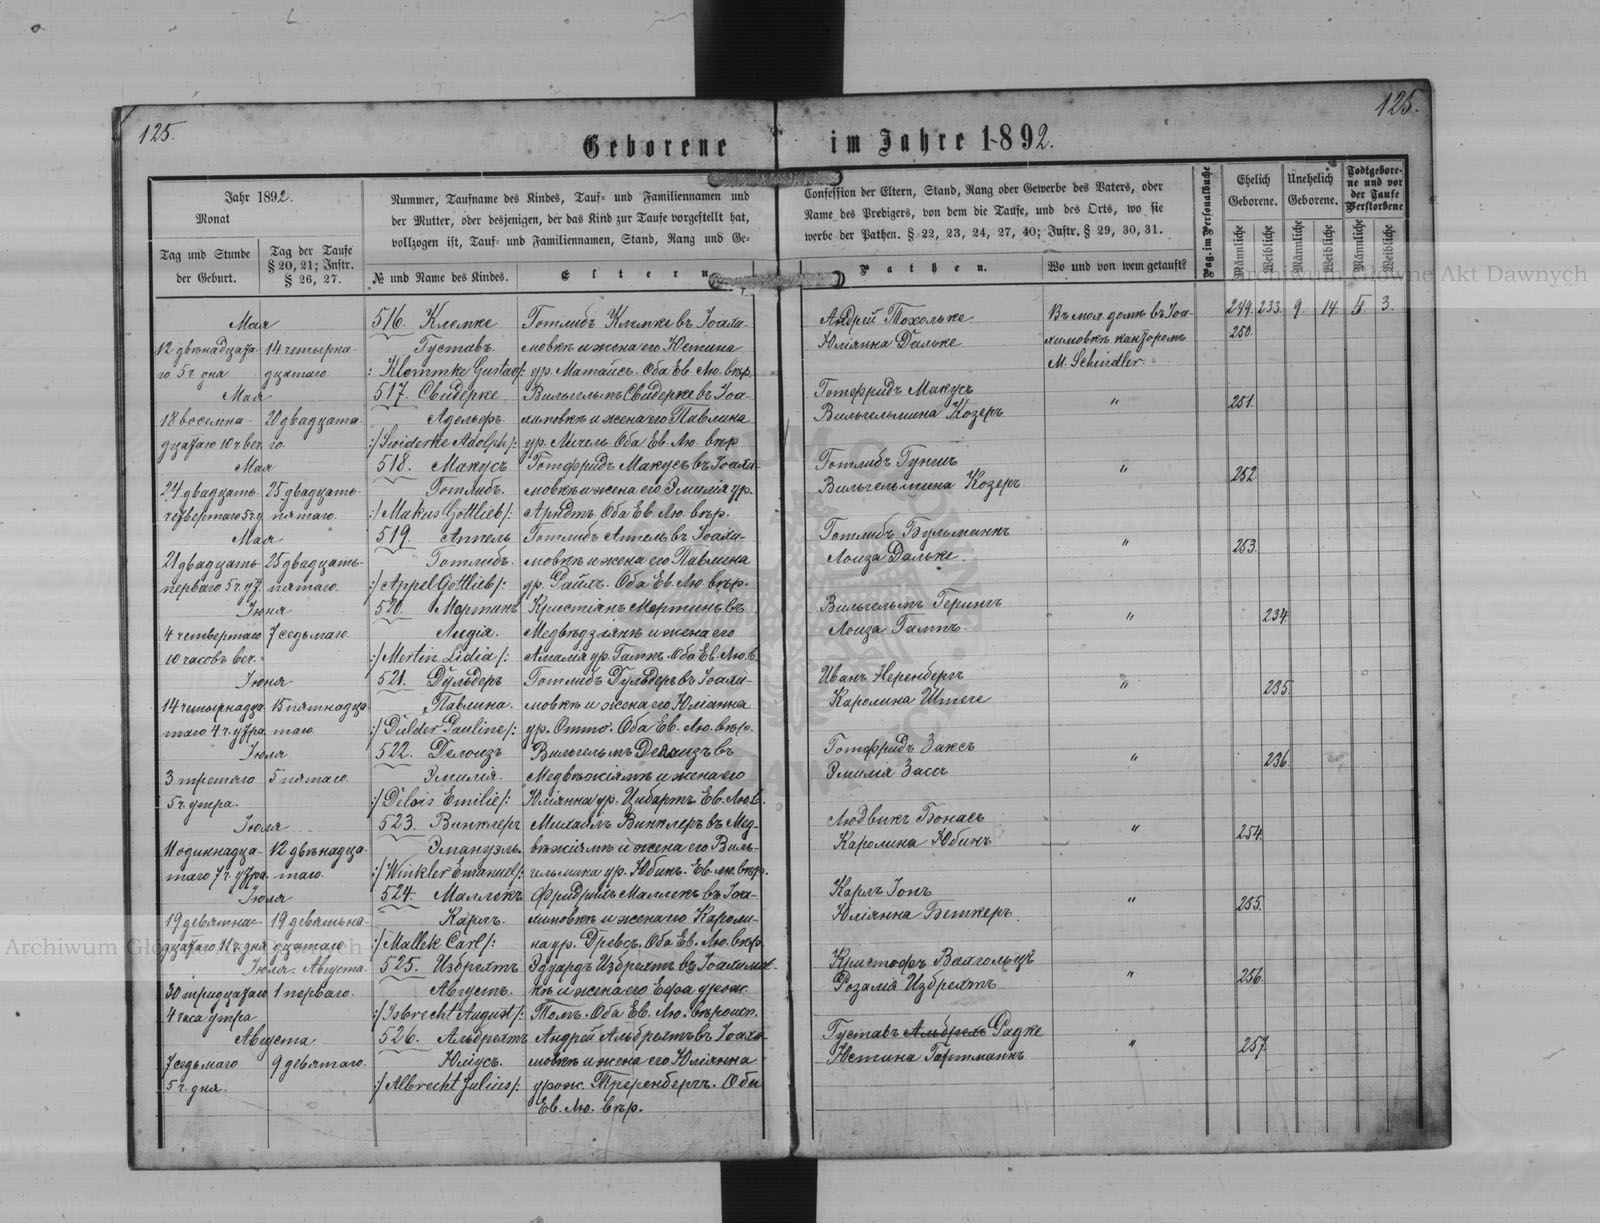 125.
125.
Geborene im Jahre 1892.
Jahr 1892.
Monat
Tag und Stunde
der Geburt.
Tag der Taufe
§ 20, 21; Instr.
§ 26, 27.
Nummer, Taufname des Kindes, Tauf= und Familiennamen und
der Mutter, oder desjenigen, der das Kind zur Taufe vorgestellt hat,
vollzogen ist, Tauf= und Familiennamen, Stand, Rang und Ge=
№ und Name des Kindes.
Eltern
Confession der Eltern, Stand, Rang oder Gewerbe des Vaters, oder
Name des Predigers, von dem die Taufe, und des Orts, wo sie
werbe der Pathen. § 22, 23, 24, 27, 40; Instr. § 29, 30, 31.
Pathen.
Wo und von wem getauft?
Pag. im Personalbuche
Ehelich
Geborene.
Unehelich
Geborene.
Todtgebore-
ne und vor
der Taufe
Verstorbene
Männliche
Weibliche
Männliche
Weibliche
Männliche
Weibliche
Мая
12 двѣнадцата-
го 5 ч. дня
14 четырна-
дцатаго.
516. Клемке
Густавъ.
:/Klemmke Gustav/:
Готлибъ Клемке въ Іоахи-
мовкѣ и жена его Юстина
ур. Матайсъ. Оба Ев. Лю. вѣр.
Андрей Тохольке
Юліянна Дальке
Въ мол. домѣ въ Іоа-
химовкѣ канторомъ
M. Schindler
249. 233. 9. 14. 5 3.
250.
Мая
18 восемна-
дцатаго 10 ч. веч.
20 двадцата
го.
517. Свидерке
Адольфъ.
:/Swiderke Adolph/:
Вильгельмъ Свидерке въ Іоа-
химовкѣ и жена его Павлина
ур. Оба Ев. Лю. вѣр
Готфридъ Макусъ
Вильгельмина Козеръ
"
251.
Мая
24 двадцать
четвертаго 5 ч.
25 двадцать-
пятаго.
518. Макусъ
Готлибъ.
:/Makus Gottlieb/:
Готфридъ Макусъ въ Іоахи-
мовкѣ и жена его Эмилія ур.
Арндтъ. Оба Ев. Лю. вѣр.
Готлибъ
Вильгельмина Козеръ
"
252
Мая
21 двадцать-
перваго 5 ч. ут.
25 двадцать-
пятаго.
519. Аппель
Готлибъ.
:/Appel Gottlieb/:
Готлибъ Аппель въ Іоахи-
мовкѣ и жена его Павлина
ур. Оба Ев. Лю. вѣр.
Готлибъ Бульманнъ
Лоиза Дальке.
"
253.
Іюня
4 четвертаго
10 часовъ веч.
7 седьмаго.
520. Мертинъ
Лидія.
:/Mertin Lidia/:
Кристіянъ Мертинъ въ
и жена его
Амалія ур. Гампъ. Оба Ев. Лю. в.
Вильгельмъ Герингъ
Лоиза Гампъ.
"
234.
Іюня
14 четырнадца
таго 4 ч. утра
15 пятнадца
таго.
521. Дульдеръ
Павлина.
:/Dulder Pauline/:
Готлибъ Дульдеръ въ Іоахи-
мовкѣ и жена его Юліянна
ур. Отто. Оба Ев. Лю. вѣр.
Иванъ Неренбергъ
Каролина Штеге
"
235.
Іюля
3 третяго
5 ч. утра.
5 пятаго.
522. Делоизъ
Эмилія.
:/Delois Emilie/:
Вильгельмъ Делоизъ въ
и жена его
Юліянна ур. Цибартъ Ев. Лю. в.
Готфридъ Заксъ
Эмилія Зассъ
"
236.
Іюля
11 одиннадца-
таго 7 ч. утра.
12 двѣнадца-
таго.
523. Винклеръ
Эмануэль.
:/Winkler Emanuel/:
Михаилъ Винклеръ въ Мед-
вѣжіямѣ и жена его Виль-
гельмина ур. Юбинъ. Ев. лю. вѣр.
Людвикъ Бонасъ
Каролина Юбинъ
"
254.
Іюля
19 девятна-
дцатаго 11 ч. дня
19 девятьна-
дцатаго
524. Маллекъ
Карлъ.
:/Mallek Carl/:
Фридрихъ Маллекъ въ Іоа-
химовкѣ и жена его Кароли-
на ур. Древсъ. Оба Ев. Лю. вѣр.
Карлъ Іонъ
Юліянна Беткеръ.
"
255.
Іюля. Августа.
30 тридцатаго
4 часа утра
1 перваго.
525. Избрехтъ
Августъ.
:/Isbrecht August/:
Эдуардъ Избрехтъ въ Іоахимов-
кѣ и жена его Ефа урож.
Томъ. Оба Ев. Лю. вѣроисп.
Кристофъ Вахгольцъ
Розалія Избрехтъ.
"
256.
Августа
7 седьмаго
5 ч. дня.
9 девятаго.
526. Альбрехтъ
Юліусъ.
:/Albrecht Julius/:
Андрей Альбрехтъ въ Іоахи-
мовкѣ и жена его Юліянна
урож. Оба
Ев. Лю. вѣр.
Густавъ Радке
Юстина Гартманнъ
"
257.
Archiwum Główne Akt Dawnych
Archiwum Główne Akt Dawnych